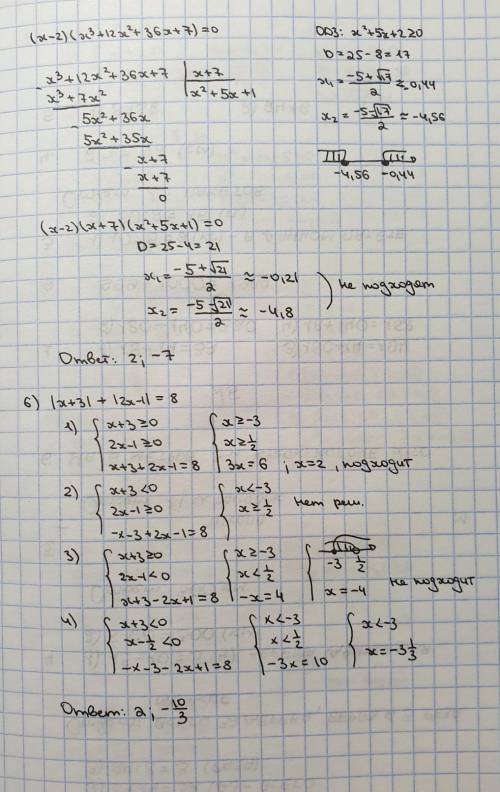 (x-2)(x³+12x²+36x+7)=0
ОДЗ: x²+5x+2≥0
D=25-8=17
x₁=(-5+√17)/2≈-0,44
x₂=(-5-√17)/2≈-4,56
-4,56 -0,44
x³+12x²+36x+7 | x+7
x³+7x² | x²+5x+1
5x²+36x
5x²+35x
x+7
x+7
0
(x-2)(x+7)(x²+5x+1)=0
D=25-4=21
x₁=(-5+√21)/2≈-0,21
x₂=(-5-√21)/2≈-4,8
не подходят
Ответ: 2; -7
б) |x+3|+|2x-1|=8
1) { x+3≥0 { x≥-3
2x-1≥0 x≥1/2
x+3+2x-1=8 3x=6 ; x=2, подходит
2) { x+3<0 { x<-3
2x-1≥0 x≥1/2 нет реш.
-x-3+2x-1=8
3) { x+3≥0 { x≥-3 {
2x-1<0 x<1/2 -3 1/2
x+3-2x+1=8 -x=4 x=-4 не подходит
4) { x+3<0 { x<-3 { x<-3
x-1/2<0 x<1/2
-x-3-2x+1=8 -3x=10 x=-3 1/3
Ответ: 2; -10/3